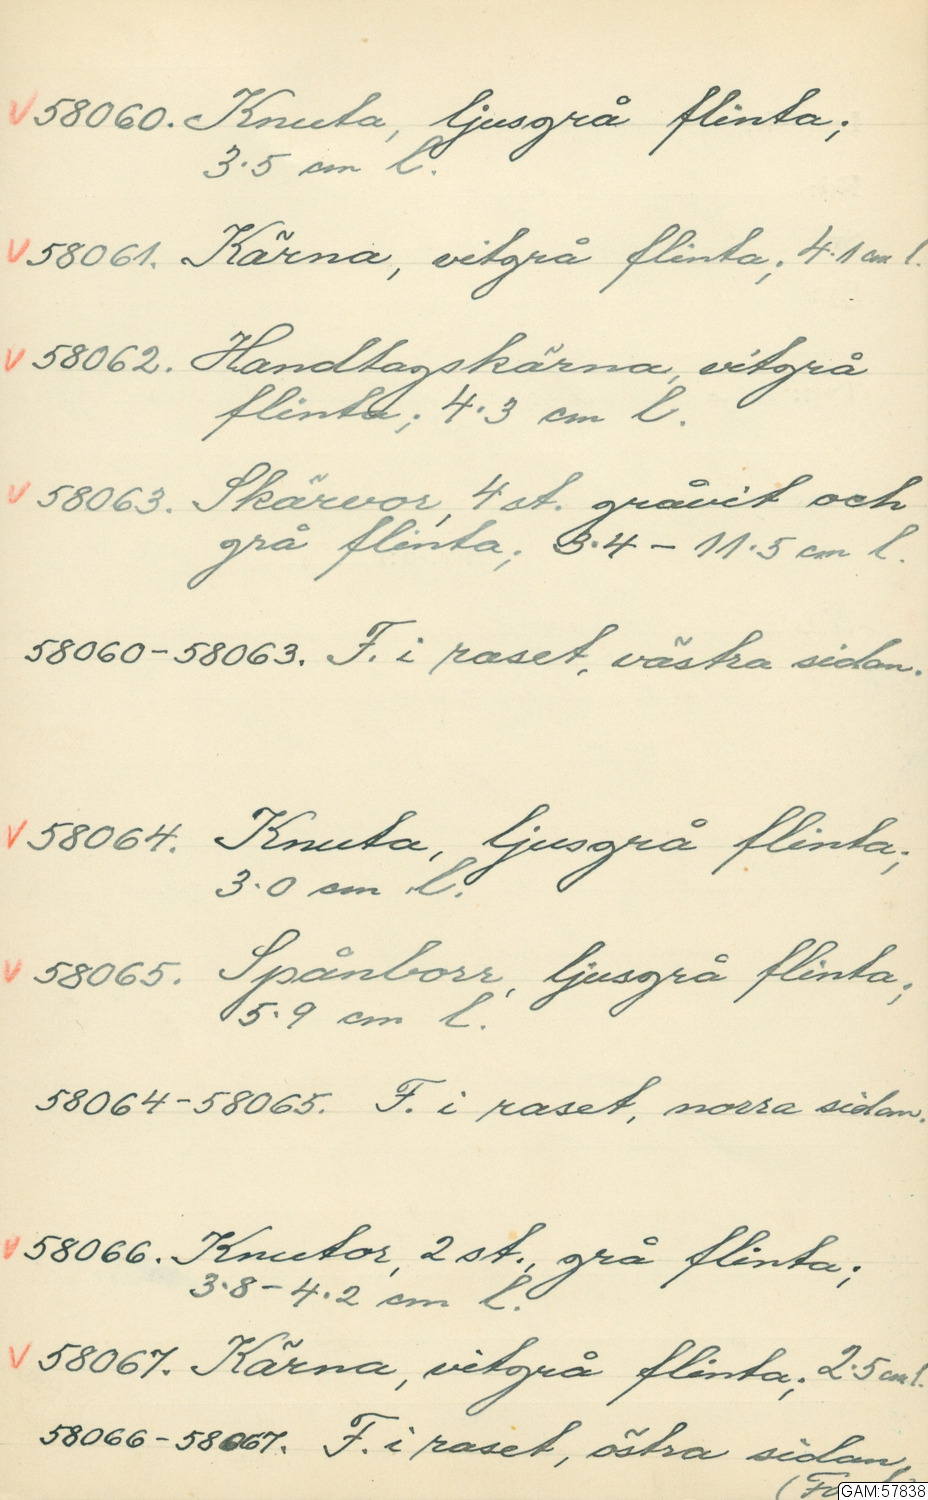 V 58060. Knuta, ljusgrå flinta;
3.5 cm l.
V 58061. Kärna, vitgrå flinta; 4.1 cm l.
V 58062. Handtagskärna, vitgrå
flinta; 4.3 cm l.
V 58063. Skärvor, 4 st. gråvit och
grå flinta; 3.4 - 11.5 cm l.
58060-58063. F. i raset, västra sidan.
V 58064. Knuta, ljusgrå flinta;
3.0 cm l.
V 58065. Spånborr, ljusgrå flinta;
5.9 cm l.
58064-58065. F. i raset, norra sidan.
V 58066. Knutor, 2 st., grå flinta;
3.8-4.2 cm l.
V 58067. Kärna, vitgrå flinta; 2.5 cm l.
58066-58067. F. i raset, östra sidan.
GAM:57838